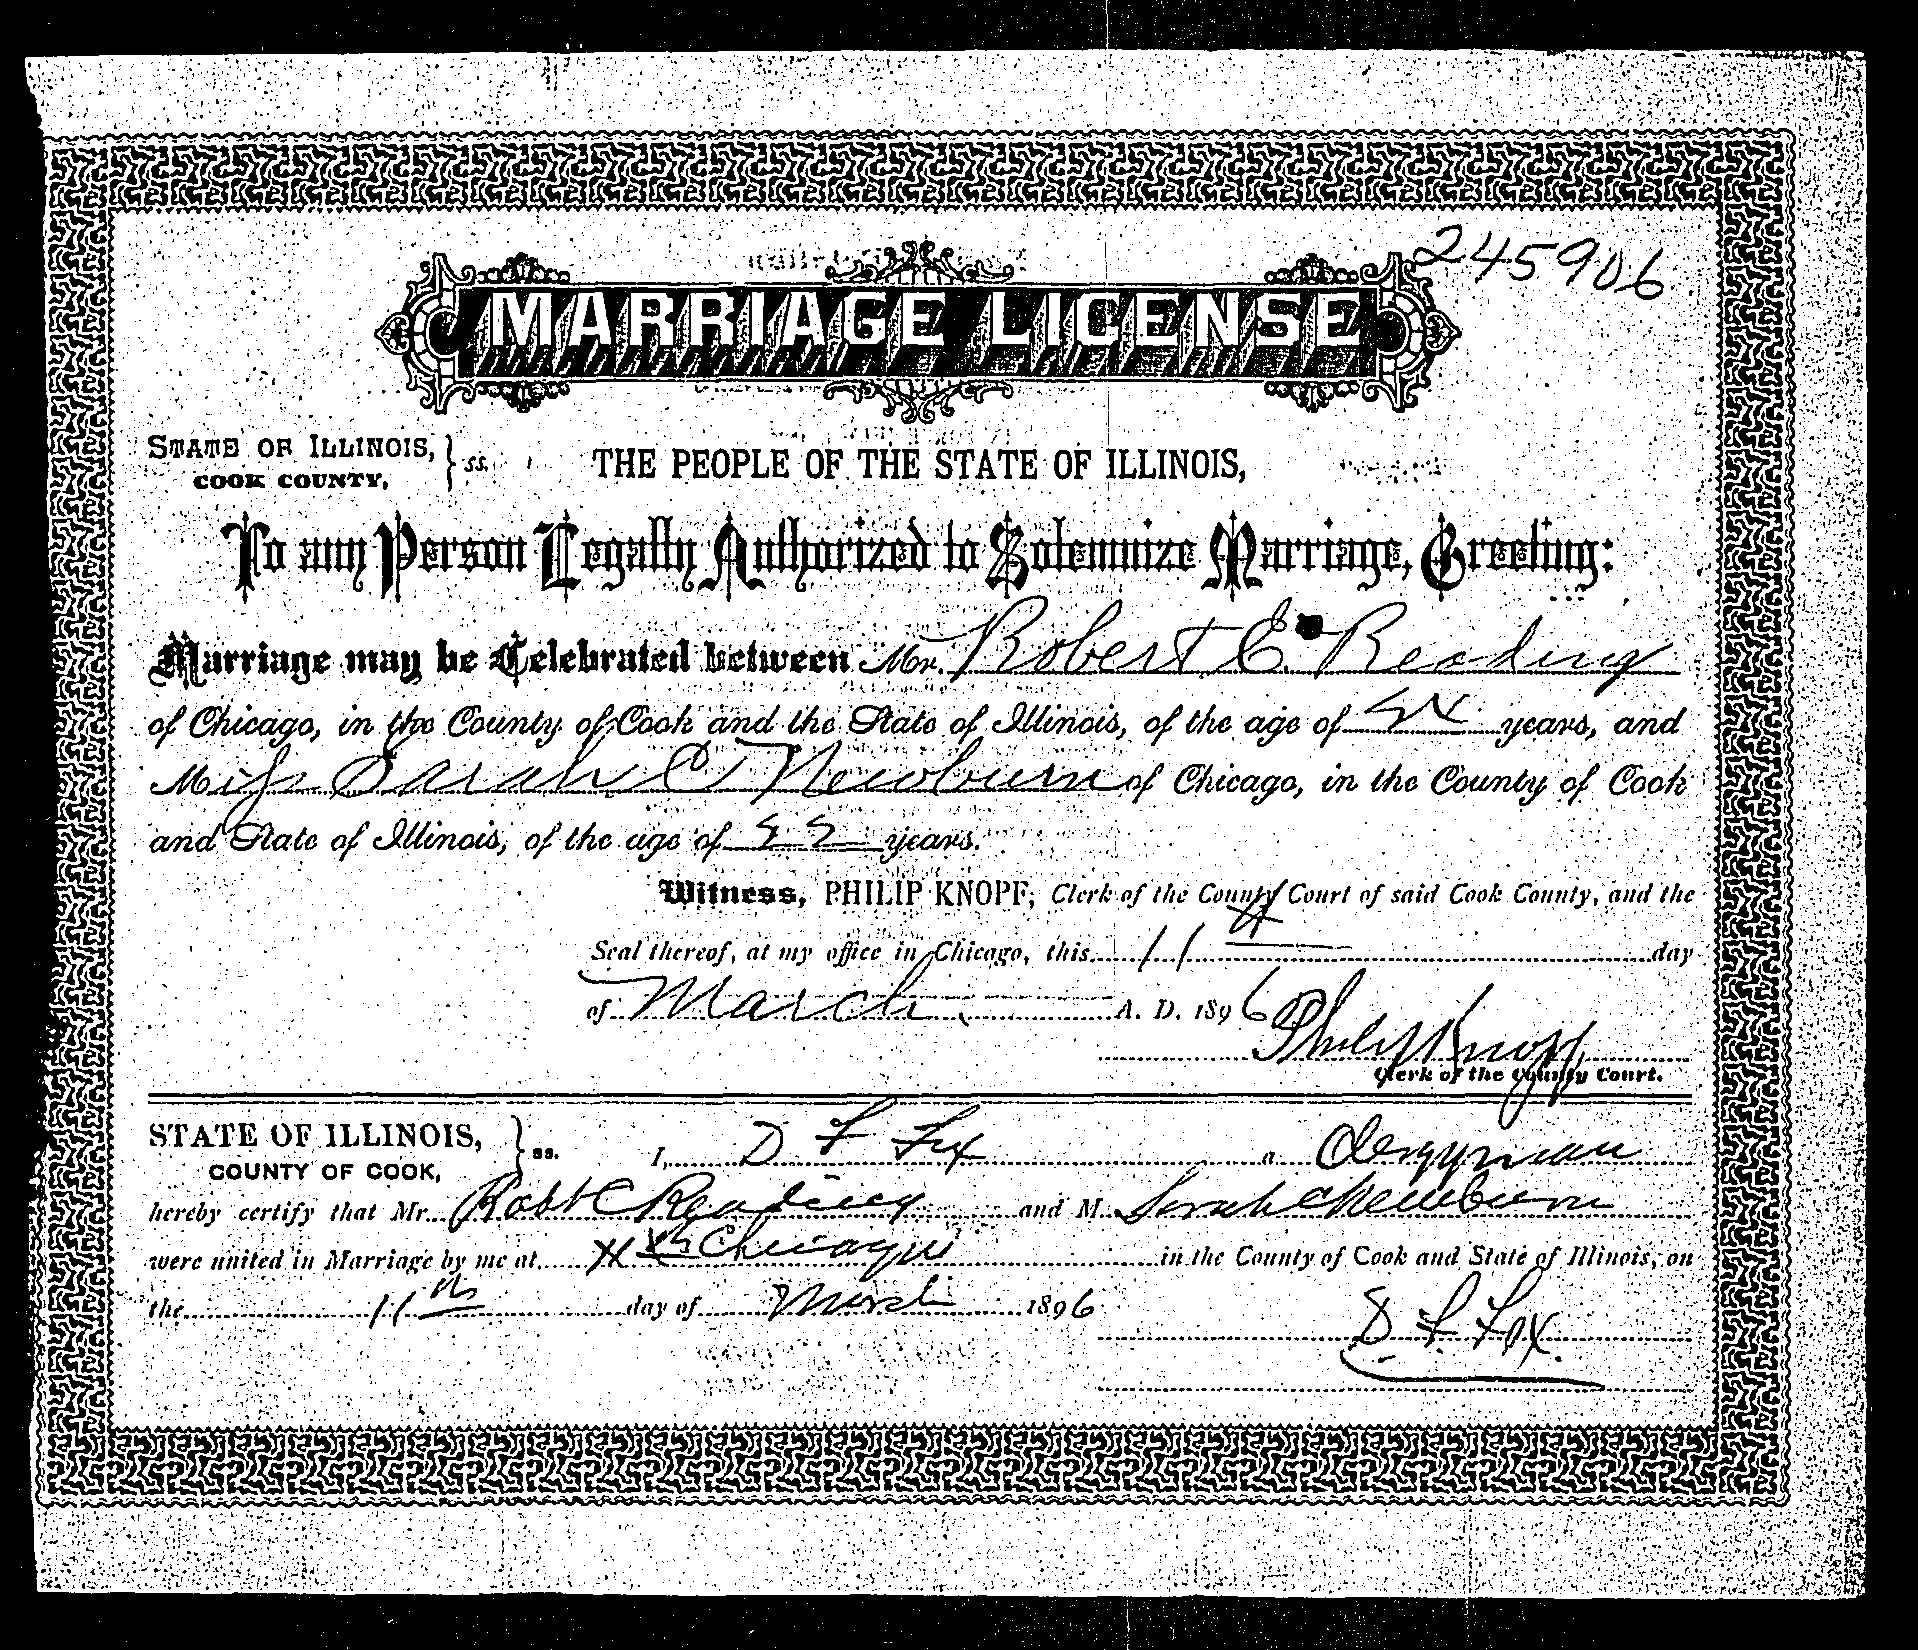 245906
MARRIAGE LICENSE
STATE OF ILLINOIS, } ss.
COOK COUNTY,
THE PEOPLE OF THE STATE OF ILLINOIS,
To any Person Legally Authorized to Solemnize Marriage, Greeting:
Marriage may be Celebrated between Mr. Robert E. Reading
of Chicago, in the County of Cook and the State of Illinois, of the age of years, and
Miss Sarah C Newburn of Chicago, in the County of Cook
and State of Illinois, of the age of 22 years.
Witness, PHILIP KNOPF, Clerk of the County Court of said Cook County, and the
Seal thereof, at my office in Chicago, this 11th day
of March A. D. 1896
Philip Knopf,
Clerk of the County Court.
STATE OF ILLINOIS, } ss. I, D F Fox a Clergyman
COUNTY OF COOK,
hereby certify that Mr. Robt C Reading and M. Sarah C Newburn
were united in Marriage by me at Chicago in the County of Cook and State of Illinois, on
the 11th day of March 1896
D. F. Fox.